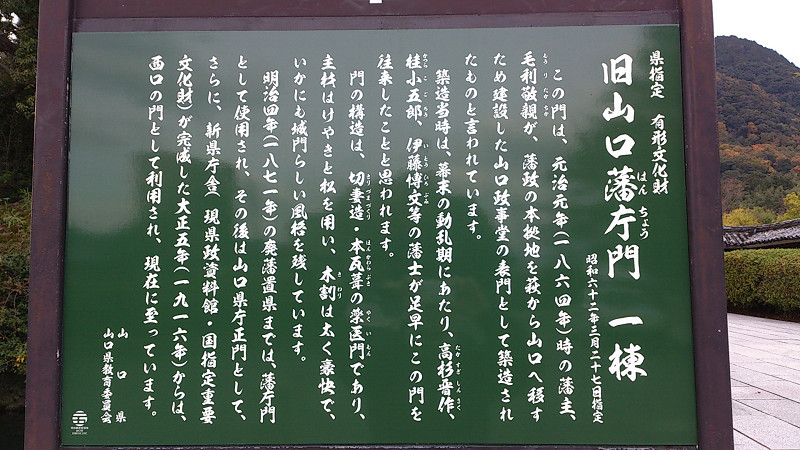 県指定 有形文化財
旧山口藩庁門 一棟
はんちょう
昭和六十二年三月二十七日指定
この門は、元治元年(一八六四年)時の藩主、
毛利敬親が、藩政の本拠地を萩から山口へ移す
もうりたかちか
ため建設した山口政事堂の表門として築造され
たものと言われています。
築造当時は、幕末の動乱期にあたり、高杉晋作、
たかすぎしんさく
桂小五郎、伊藤博文等の藩士が足早にこの門を
かつらこごろう いとうひろぶみ
往来したことと思われます。
門の構造は、切妻造・本瓦葺の薬医門であり、
きりづまづくり ほんかわらぶき やくいもん
主柱はけやきと松を用い、木割は太く豪快で、
きわり
いかにも城門らしい風格を残しています。
明治四年(一八七一年)の廃藩置県までは、藩庁門
として使用され、その後は山口県庁正門として、
さらに、新県庁舎(現県政資料館・国指定重要
文化財)が完成した大正五年(一九一六年)からは、
西口の門として利用され、現在に至っています。
山口県
山口県教育委員会